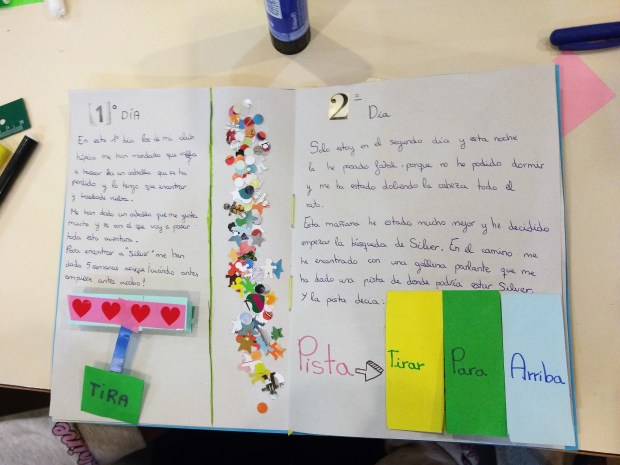 1º DÍA
En este 1º Día los de mi club
hípico me han mandado que
a buscar un caballo que se ha
perdido y lo tengo que encontrar
y traerlo de vuelta.
Me han dado un caballo que me gusta
mucho y es con el que voy a pasar
toda esta aventura.
Para encontrar a "Silver" me han
dado 5 semanas aunque cuanto antes
empiece antes acabo!
TIRA
2º Día
Solo estoy en el segundo día y esta noche
la he pasado fatal porque no he podido dormir
y me ha estado doliendo la cabeza todo el
rato.
Esta mañana he estado mucho mejor y he decidido
empezar la búsqueda de Silver. En el camino me
he encontrado con una gallina parlante que me
ha dado una pista de donde podría estar Silver.
Y la pista decía:
Pista
Tirar
Para
Arriba